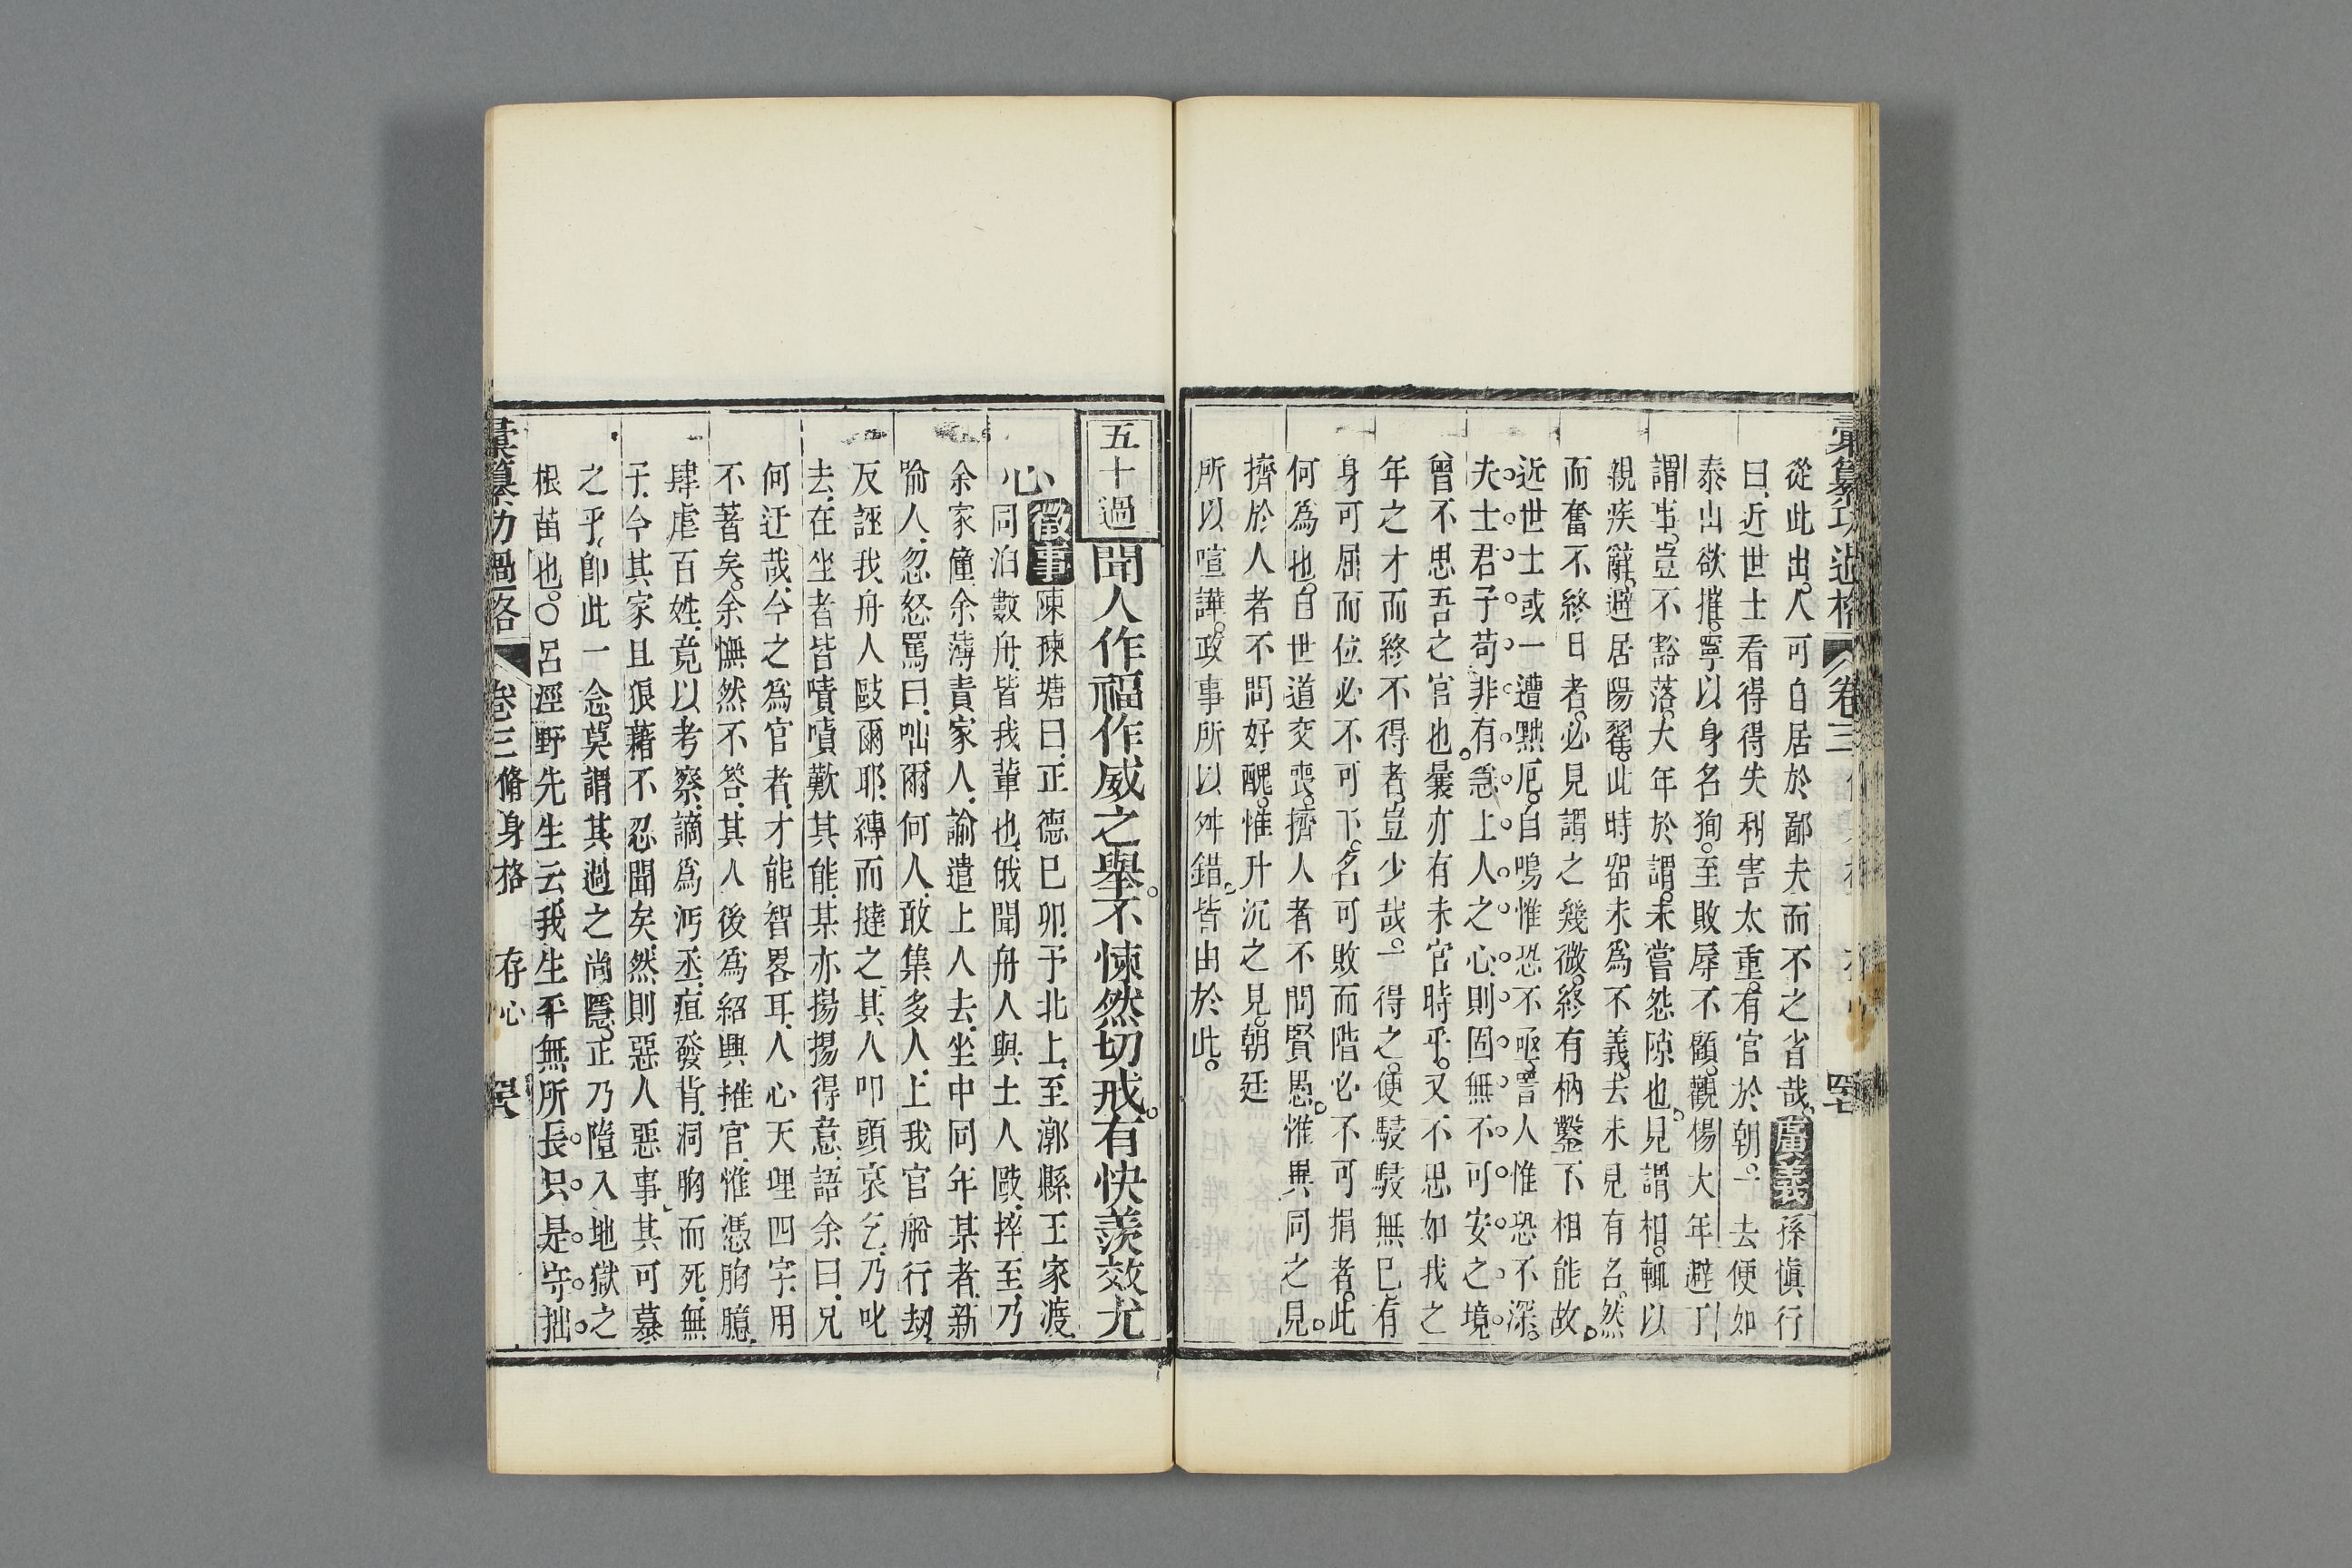 彙纂功過格 卷三
從此出。人可自居於鄙夫而不之省哉。廣義孫愼行
曰、近世士看得得失利害太重。有官於朝。一去便如
泰山欲摧。寧以身名狥。至敗辱不顧。觀楊大年避丁
謂事。豈不豁落。大年於謂。未嘗怨隙也。見謂相。輒以
親疾辭。避居陽翟。此時畱未爲不義。去未見有名。然
而奮不終日者。必見謂之幾微。終有枘鑿不相能故。
近世士或一遭黜厄。自鳴惟恐不亟。詈人惟恐不深。
夫士君子苟非有急上人之心。則固無不可安之境。
曾不思吾之官也。曩亦有未官時乎。又不思如我之
年之才而終不得者。豈少哉。一得之。便駸駸無已。有
身可屈而位必不可下。名可敗而階必不可捐者。此
何爲也。自世道交喪。擠人者不問賢愚。惟異同之見。
擠於人者不問好醜。惟升沉之見。朝廷
所以喧譁。政事所以舛錯。皆由於此。
五十過 聞人作福作威之舉。不悚然切戒。有快羨效尤
心 徵事陳㻋塘曰、正德己卯、予北上、至漷縣王家渡、
同泊數舟、皆我輩也、俄聞舟人與土人毆、捽至、乃
余家僮、余薄責家人、諭遣上人去、坐中同年某者、新
喻人、忽怒罵曰、咄爾何人、敢集多人、上我官船行刼、
反誣我舟人毆爾耶、縳而撻之、其人叩頭哀乞、乃叱
去、在坐者皆嘖嘖歎其能、某亦揚揚得意、語余曰、兄
何迂哉、今之爲官者、才能智畧耳、人心天理四字、用
不著矣。余憮然不答、其人後爲紹興推官、惟憑胸臆、
肆虐百姓、竟以考察、謫爲沔丞、疽發背、洞胸而死、無
子、今其家且狼藉不忍聞矣、然則惡人惡事、其可慕
之乎、卽此一念、莫謂其過之尚隱。正乃隨入地獄之
根苗也。〇呂涇野先生云、我生平無所長。只是守拙。
彙纂功過格 卷三 脩身格 存心